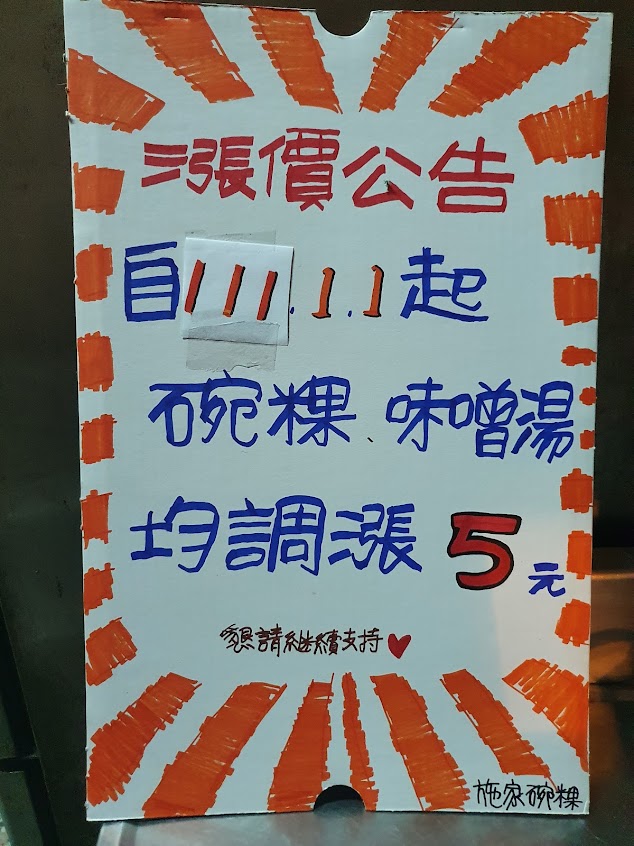 漲價公告
自111.1.1起
碗粿、味噌湯
均調漲5元
懇請繼續支持
施家碗粿